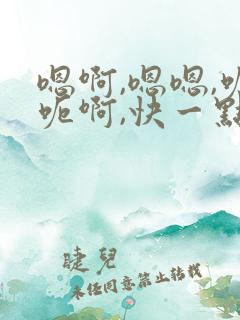 嗯啊,嗯嗯,呃
呃啊,快一點
睫兒
未任同意禁止转载